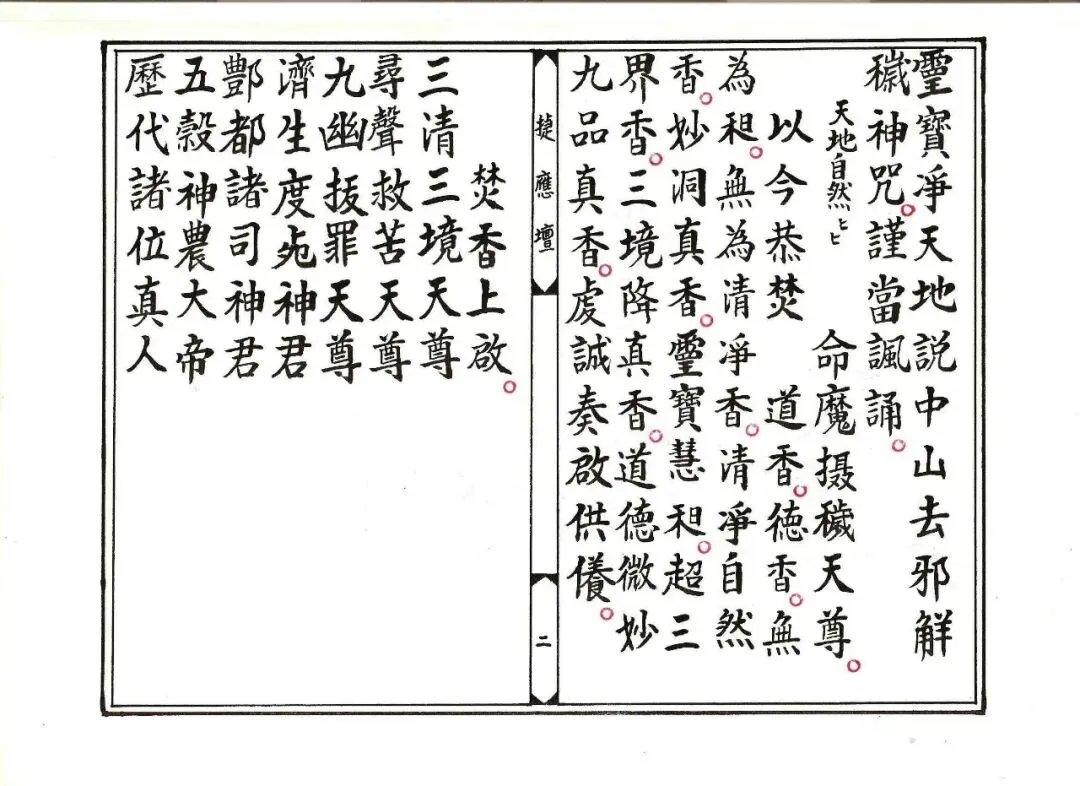 靈寶淨天地説中山去邪解
穢神咒。謹當諷誦。
天地自然ヒヒ　命魔摄穢天尊。
以今恭焚　道香。德香。無
為香。無為清淨香。清淨自然
香。妙洞真香。靈寶慧香。超三
界香。三境降真香。道德微妙
九品真香。虔誠奏啟供養。
捷應壇
二
焚香上啟。
三清三境天尊
尋聲救苦天尊
九幽拔罪天尊
濟生度死神君
酆都諸司神君
五榖神農大帝
歷代諸位真人